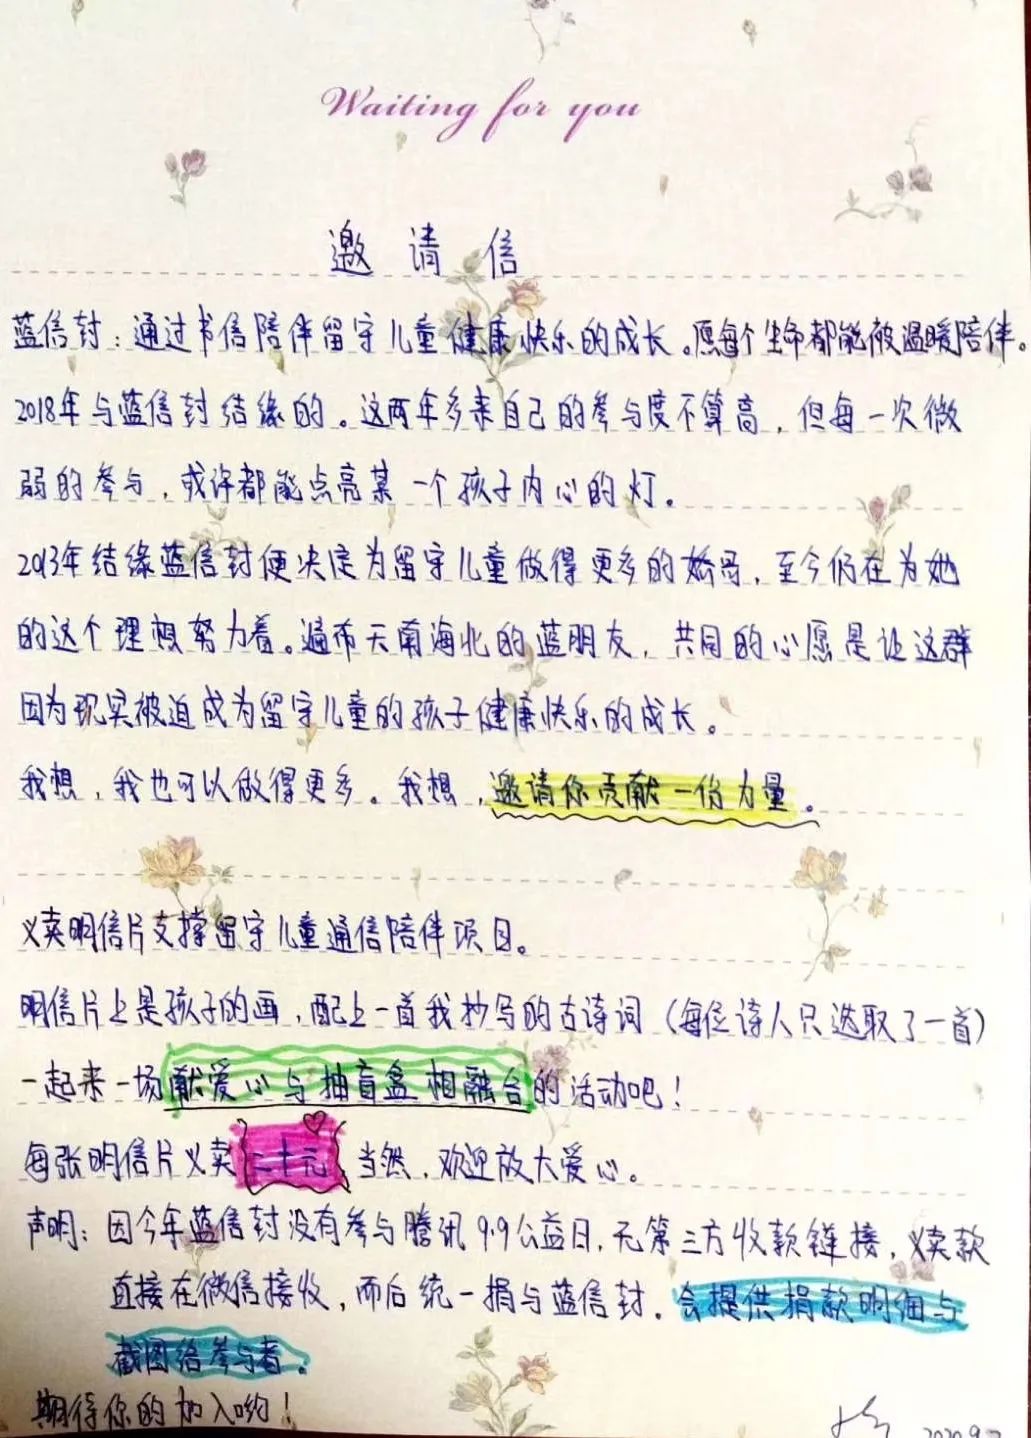 Waiting for you
邀请信
蓝信封：通过书信陪伴留守儿童健康快乐的成长。愿每个生命都能被温暖陪伴。
2018年与蓝信封结缘的。这两年多来自己的参与度不算高，但每一次微
弱的参与，或许都能点亮某一个孩子内心的灯。
2013年结缘蓝信封便决定为留守儿童做得更多的娇哥，至今仍在为她
的这个理想努力着。遍布天南海北的蓝朋友，共同的心愿是让这群
因为现实被迫成为留守儿童的孩子健康快乐的成长。
我想，我也可以做得更多。我想，邀请你贡献一份力量。
义卖明信片支撑留守儿童通信陪伴项目。
明信片上是孩子的画，配上一首我抄写的古诗词（每位诗人只选取了一首）
一起来一场献爱心与抽盲盒相融合的活动吧！
每张明信片义卖二十元，当然，欢迎放大爱心。
声明：因今年蓝信封没有参与腾讯9.9公益日，无第三方收款链接，义卖款
直接在微信接收，而后统一捐与蓝信封。会提供捐款明细与
截图给参与者。
期待你的加入哟！